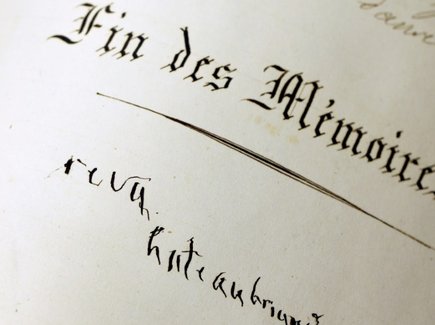 Fin des Mémoires
revu,
hateaubriand